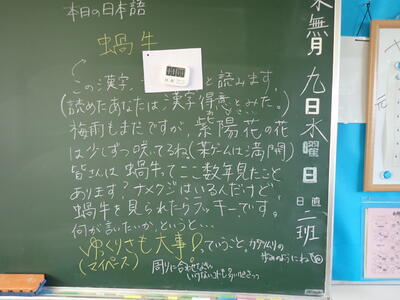 本日の日本語
蝸牛
この漢字、
と読みます。
(読めたあなたは漢字得意とみた。)
梅雨もまだですが、紫陽花の花
は少しずつ咲いてるね。(某ゲームは満開)
皆さんは蝸牛、ってここ数年見たこと
あります?ナメクジはいるんだけど、
蝸牛を見られたらラッキーです。
何が言いたいか、というと…
ゆっくりさも大事
(マイペース)
っていうこと。カタツムリの
歩みのようにね
周りに合わせなきゃ
いけないコトも多いけどさっ
水無月九日水曜日
日直
二班
元